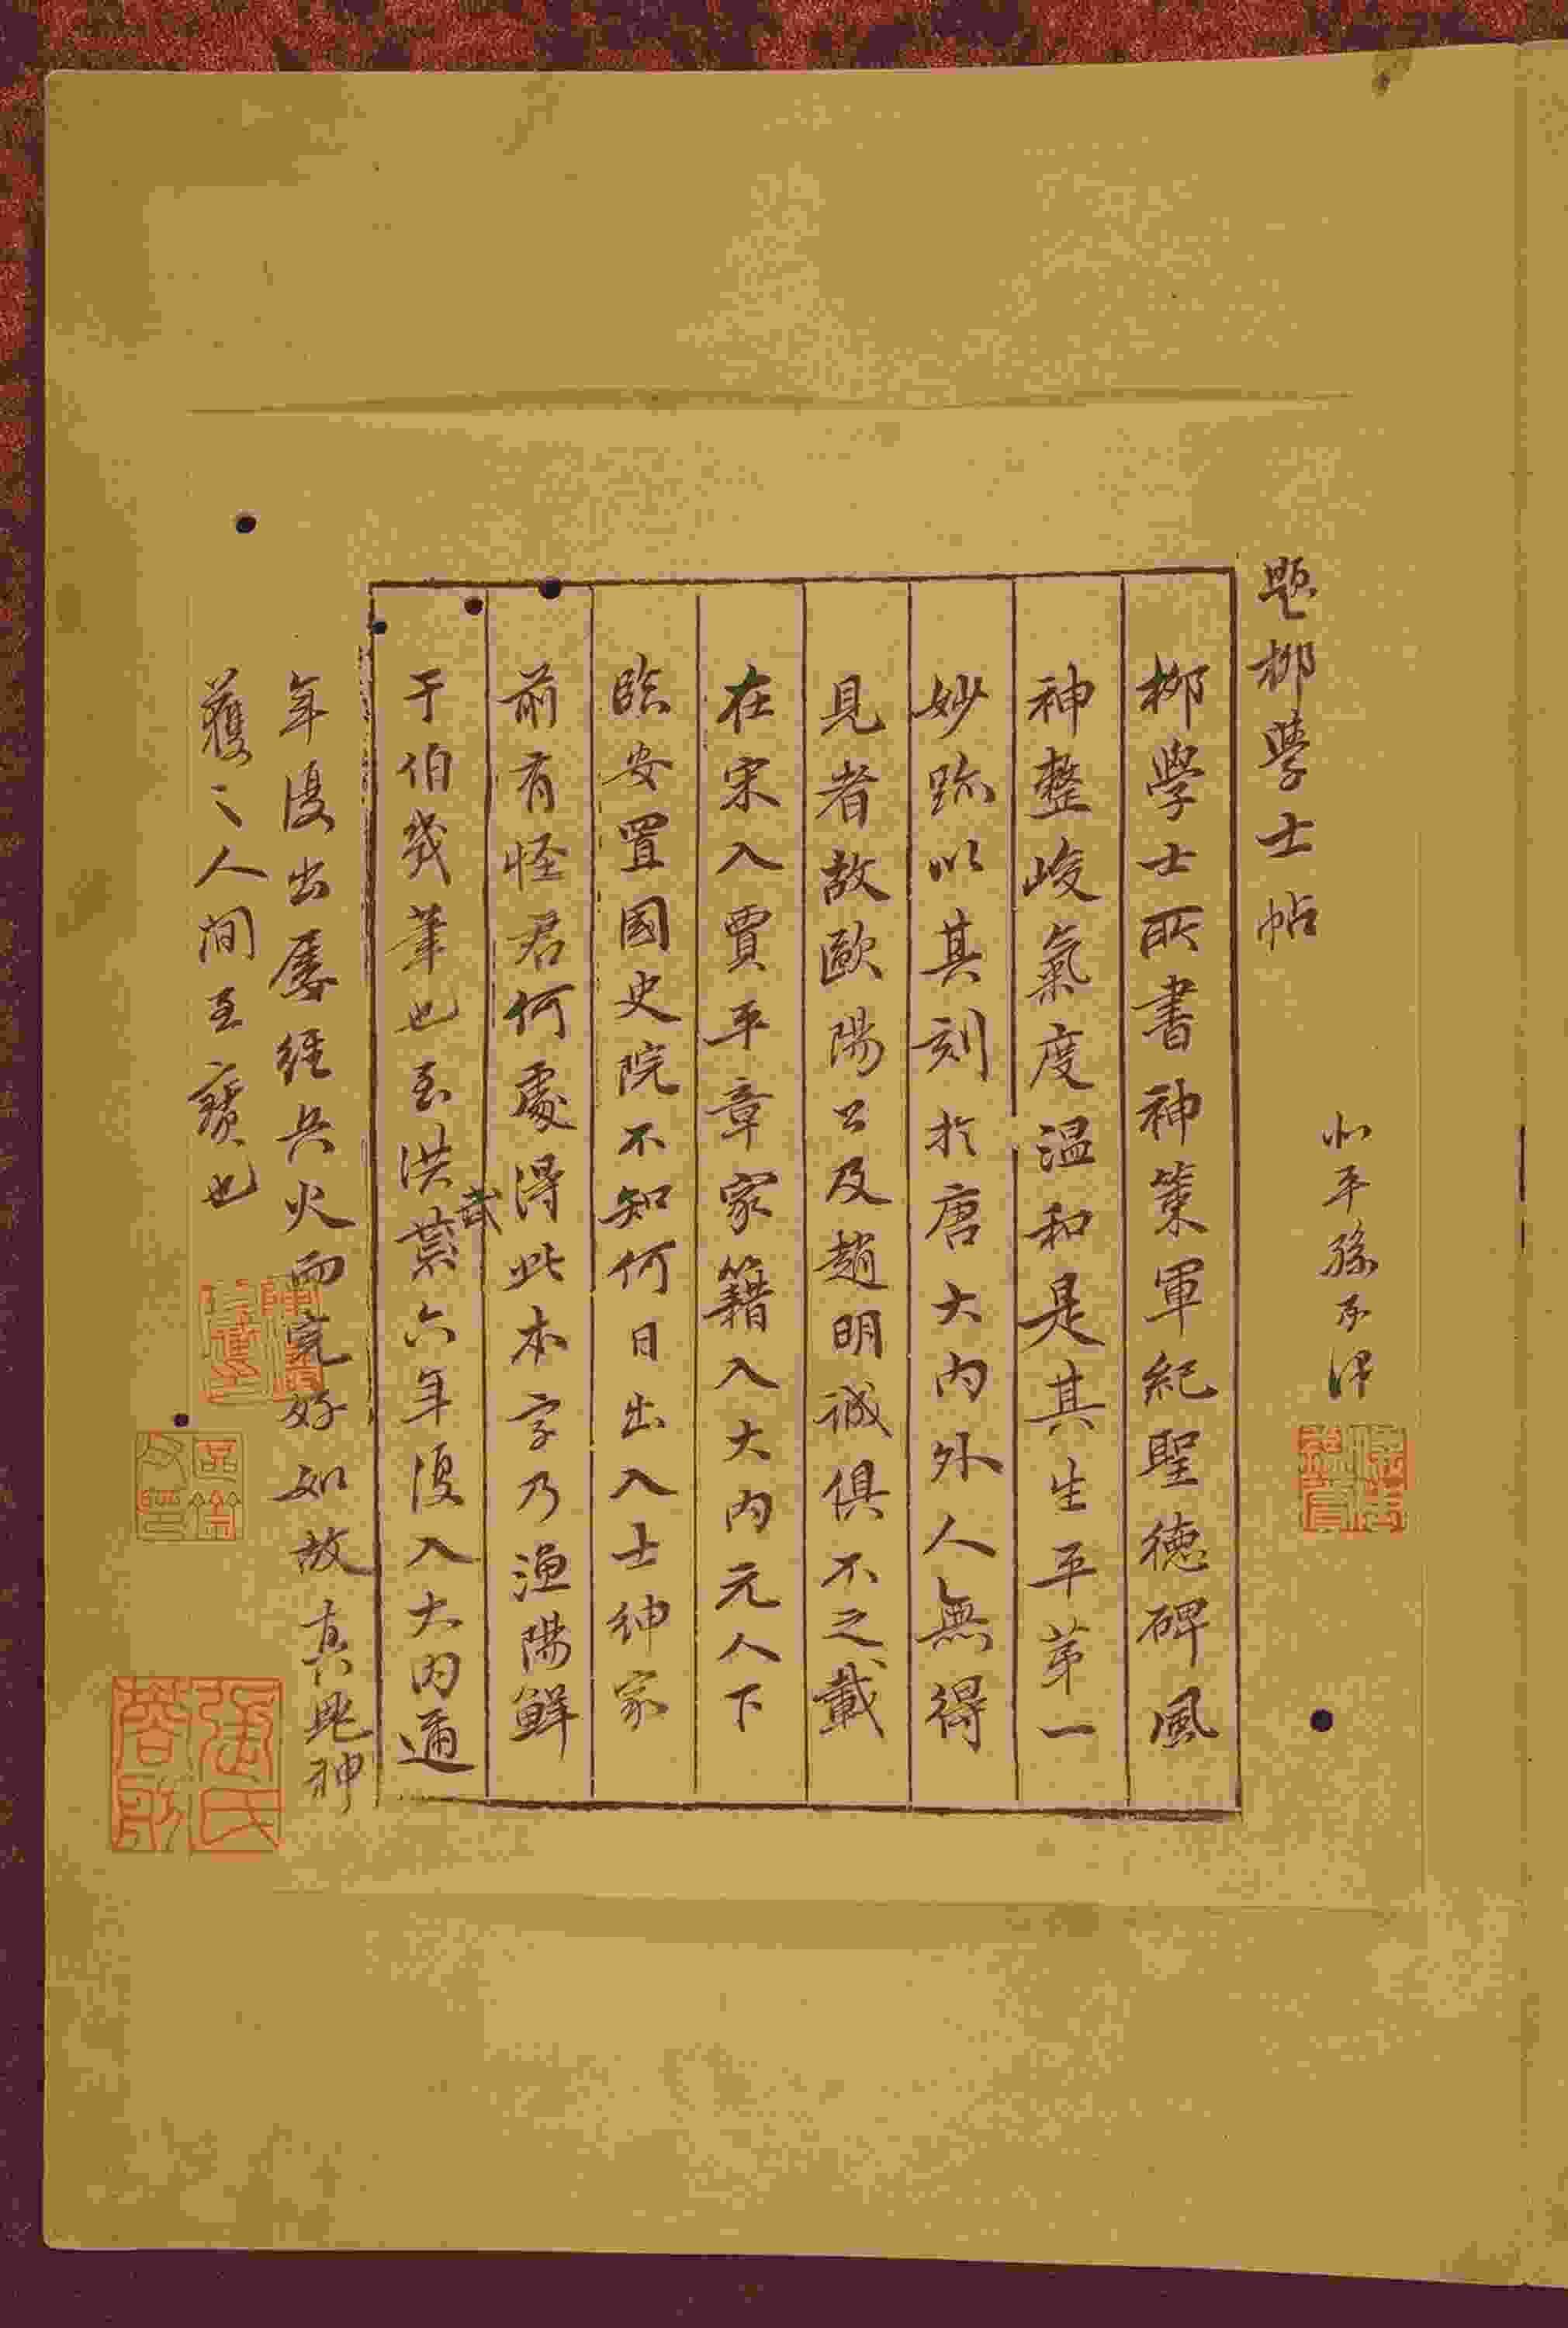 題柳學士帖
北平孫承澤
柳學士所書神策軍紀聖德碑風
神整峻氣度温和是其生平苐一
妙跡以其刻於唐大内外人無得
見者故歐陽公及趙明誠俱不之載
在宋入賈平章家籍入大内元人下
臨安置國史院不知何日出入士紳家
前有怪君何處得此本字乃漁陽鮮
于伯幾筆也至洪武六年復入大内邇
年復出屢經兵火而完好如故真鬼神
護之人間至寶也
張氏